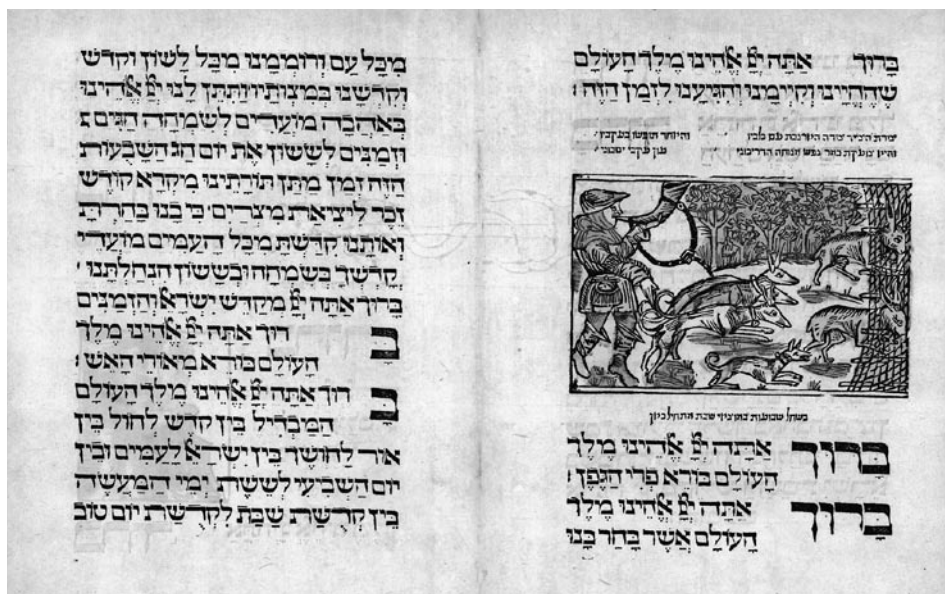 ברוך אתה יי אלהינו מלך העולם
שהחיינו וקיימנו והגיענו לזמן הזה :
כשחל שבועות במוצאי שבת
ברוך אתה יי אלהינו מלך
העולם בורא פרי הגפן :
ברוך אתה יי אלהינו מלך
העולם אשר בחר בנו
מכל עם ורוממנו מכל לשון וקדש
וקדשנו במצותיו ותתן לנו יי אלהינו
באהבה מועדים לשמחה חגים
וזמנים לששון את יום חג השבעות
הזה זמן מתן תורתינו מקרא קודש
זכר ליציאת מצרים כי בנו בחרת
ואותנו קדשת מכל העמים מועדי
קדשך בשמחה ובששון הנחלתנו
ברוך אתה יי מקדש ישראל והזמנים
ברוך אתה יי אלהינו מלך
העולם בורא מאורי האש :
ברוך אתה יי אלהינו מלך העולם
המבדיל בין קדש לחול בין
אור לחושך בין ישראל לעמים ובין
יום השביעי לששת ימי המעשה
בין קדשת שבת לקדשת יום טוב